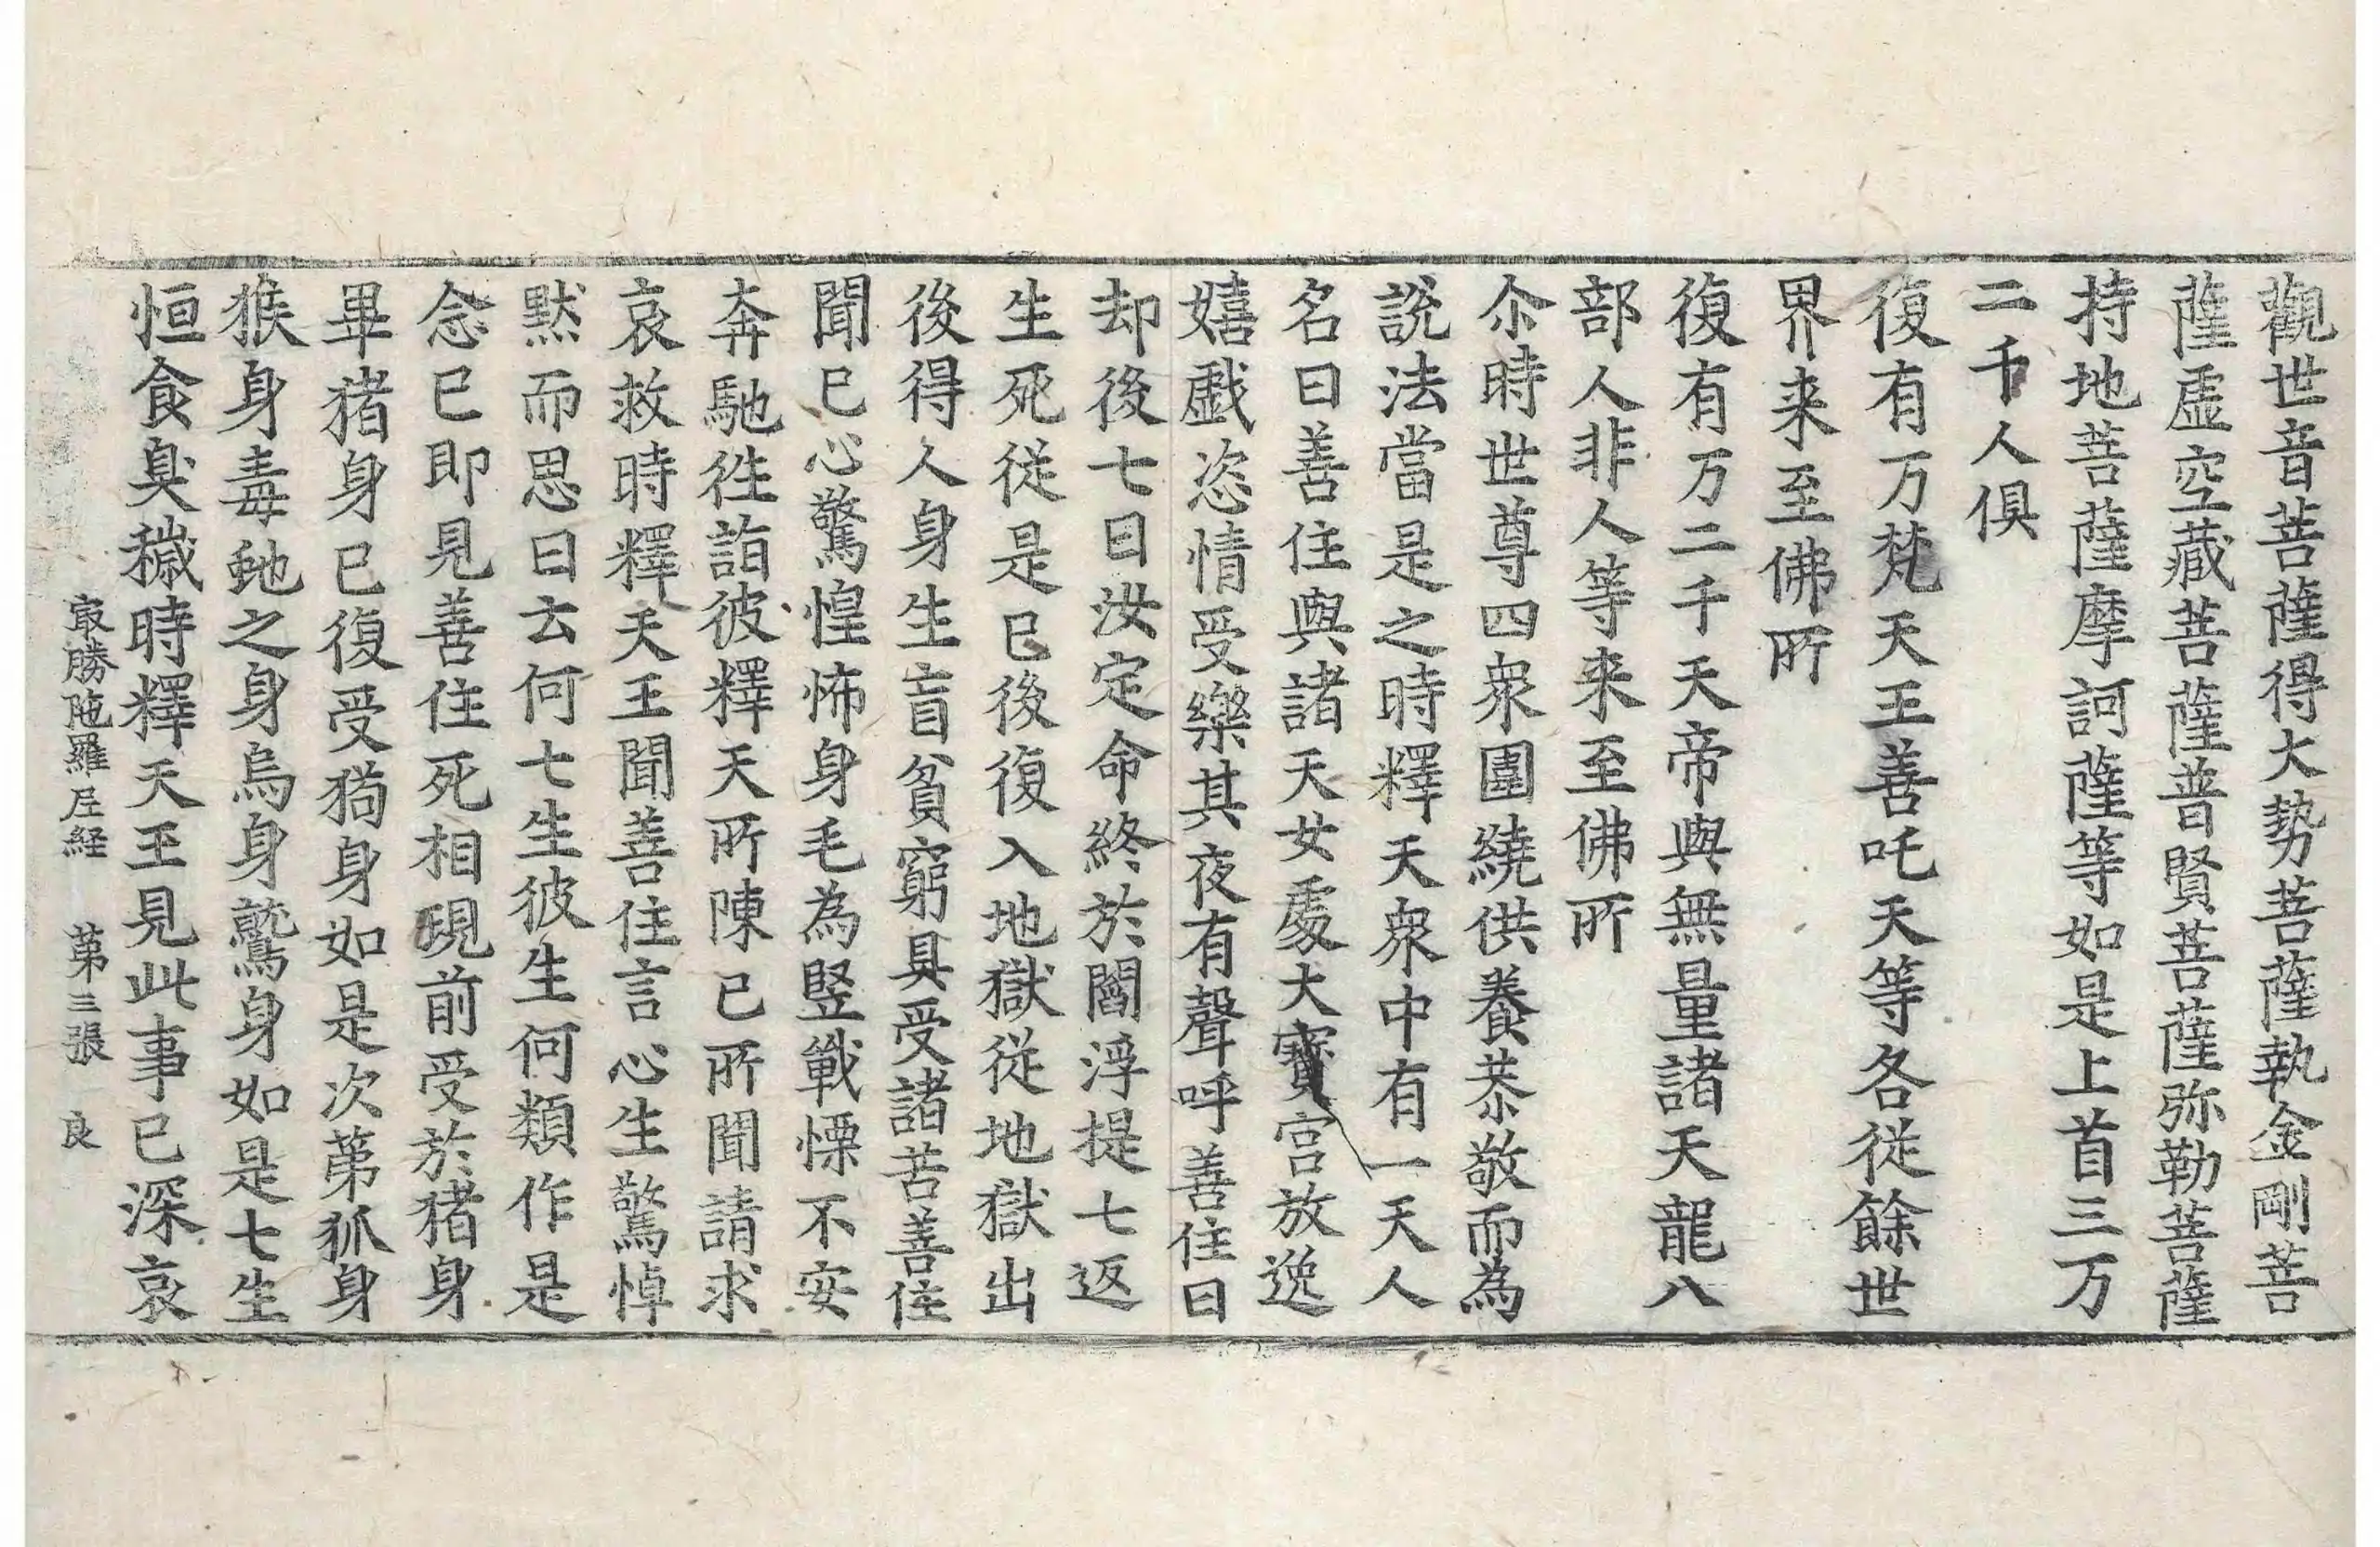 觀世音菩薩得大勢菩薩執金剛菩
薩虛空藏菩薩普賢菩薩弥勒菩薩
持地菩薩摩訶薩等如是上首三万
二千人俱
復有万梵天王善吒天等各從餘世
界来至佛所
復有万二千天帝與無量諸天龍八
部人非人等来至佛所
尒時世尊四衆圍繞供養恭敬而為
說法當是之時釋天衆中有一天人
名曰善住與諸天女處大寶宮放逸
嬉戲恣情受樂其夜有聲呼善住曰
却後七日汝定命終於閻浮提七返
生死從是已後復入地獄從地獄出
後得人身生盲貧窮具受諸苦善住
聞已心驚惶怖身毛為竪戰慄不安
奔馳徃詣彼釋天所陳已所聞請求
哀救時釋天王聞善住言心生驚悼
默而思曰云何七生彼生何類作是
念已即見善住死相現前受於猪身
畢猪身已復受猫身如是次苐狐身
猴身毒虵之身烏身鷲身如是七生
恒食臭穢時釋天王見此事已深哀
㝡勝陁羅尼経　苐三張　良